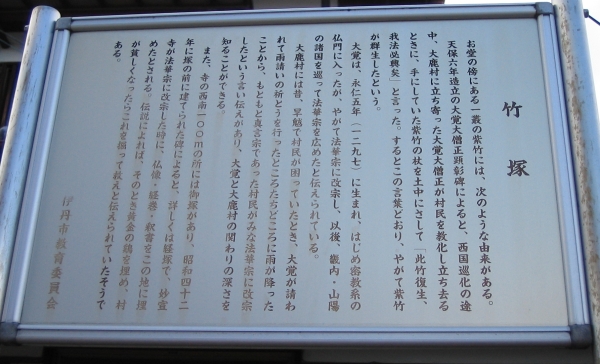 竹塚
お堂の傍にある一叢の紫竹には、次のような由来がある。
天保六年造立の大覚大僧正顕彰碑によると、西国巡化の途
中、大鹿村に立ち寄った大覚大僧正が村民を教化し立ち去る
ときに、手にしていた紫竹の杖を土中にさして「此竹復生、
我法必興矣」と言った。するとこの言葉どおり、やがて紫竹
が群生したという。
大覚は、永仁五年（一二九七）に生まれ、はじめ密教系の
仏門に入ったが、やがて法華宗に改宗し、以後、畿内・山陽
の諸国を巡って法華宗を広めたと伝えられている。
大鹿村には昔、旱魃で村民が困っていたとき、大覚が請わ
れて雨請いの祈とうを行ったところたちどころに雨が降った
ことから、もともと真言宗であった村民がみな法華宗に改宗
したという言い伝えがあり、大覚と大鹿村の関わりの深さを
知ることができる。
また、寺の西南一〇〇mの所には御塚があり、昭和四十二
年に塚の前に建てられた碑によると、詳しくは経塚で、妙宣
寺が法華宗に改宗した時に、仏像・経巻・釈書をこの地に埋
めたとされる。伝説によれば、そのとき黄金の鶏を埋め、村
が貧しくなったらこれを掘って救えと伝えられていたそうで
ある。
伊丹市教育委員会